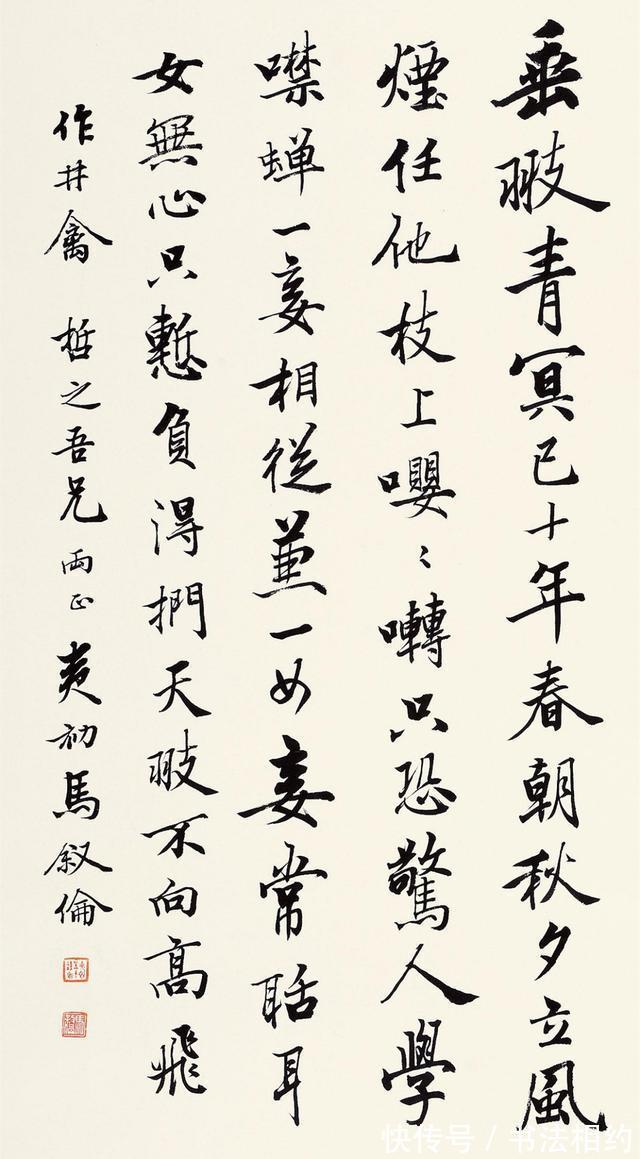 垂翄青冥已十年春朝秋夕立風
煙任他枝上嚶〻囀只恐驚人學
噤蟬一妾相從兼一女妾常聒耳
女無心只慙負得捫天翄不向髙飛
作井禽 哲之吾兄 兩正 夷初馬叙倫
快传号 / 书法相约